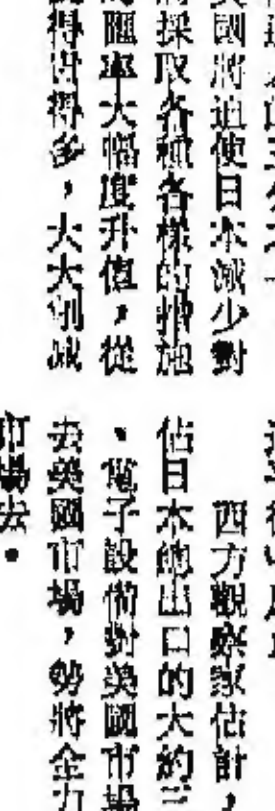 國將迫使日本減少對
採取各種各樣的措施
匯率大幅度升值,從
得貴得多,大大削減
西方觀察家估計,
佔日本總出口的大約三
、電子設備對美國市場
去美國市場,勢將全力
市場去。